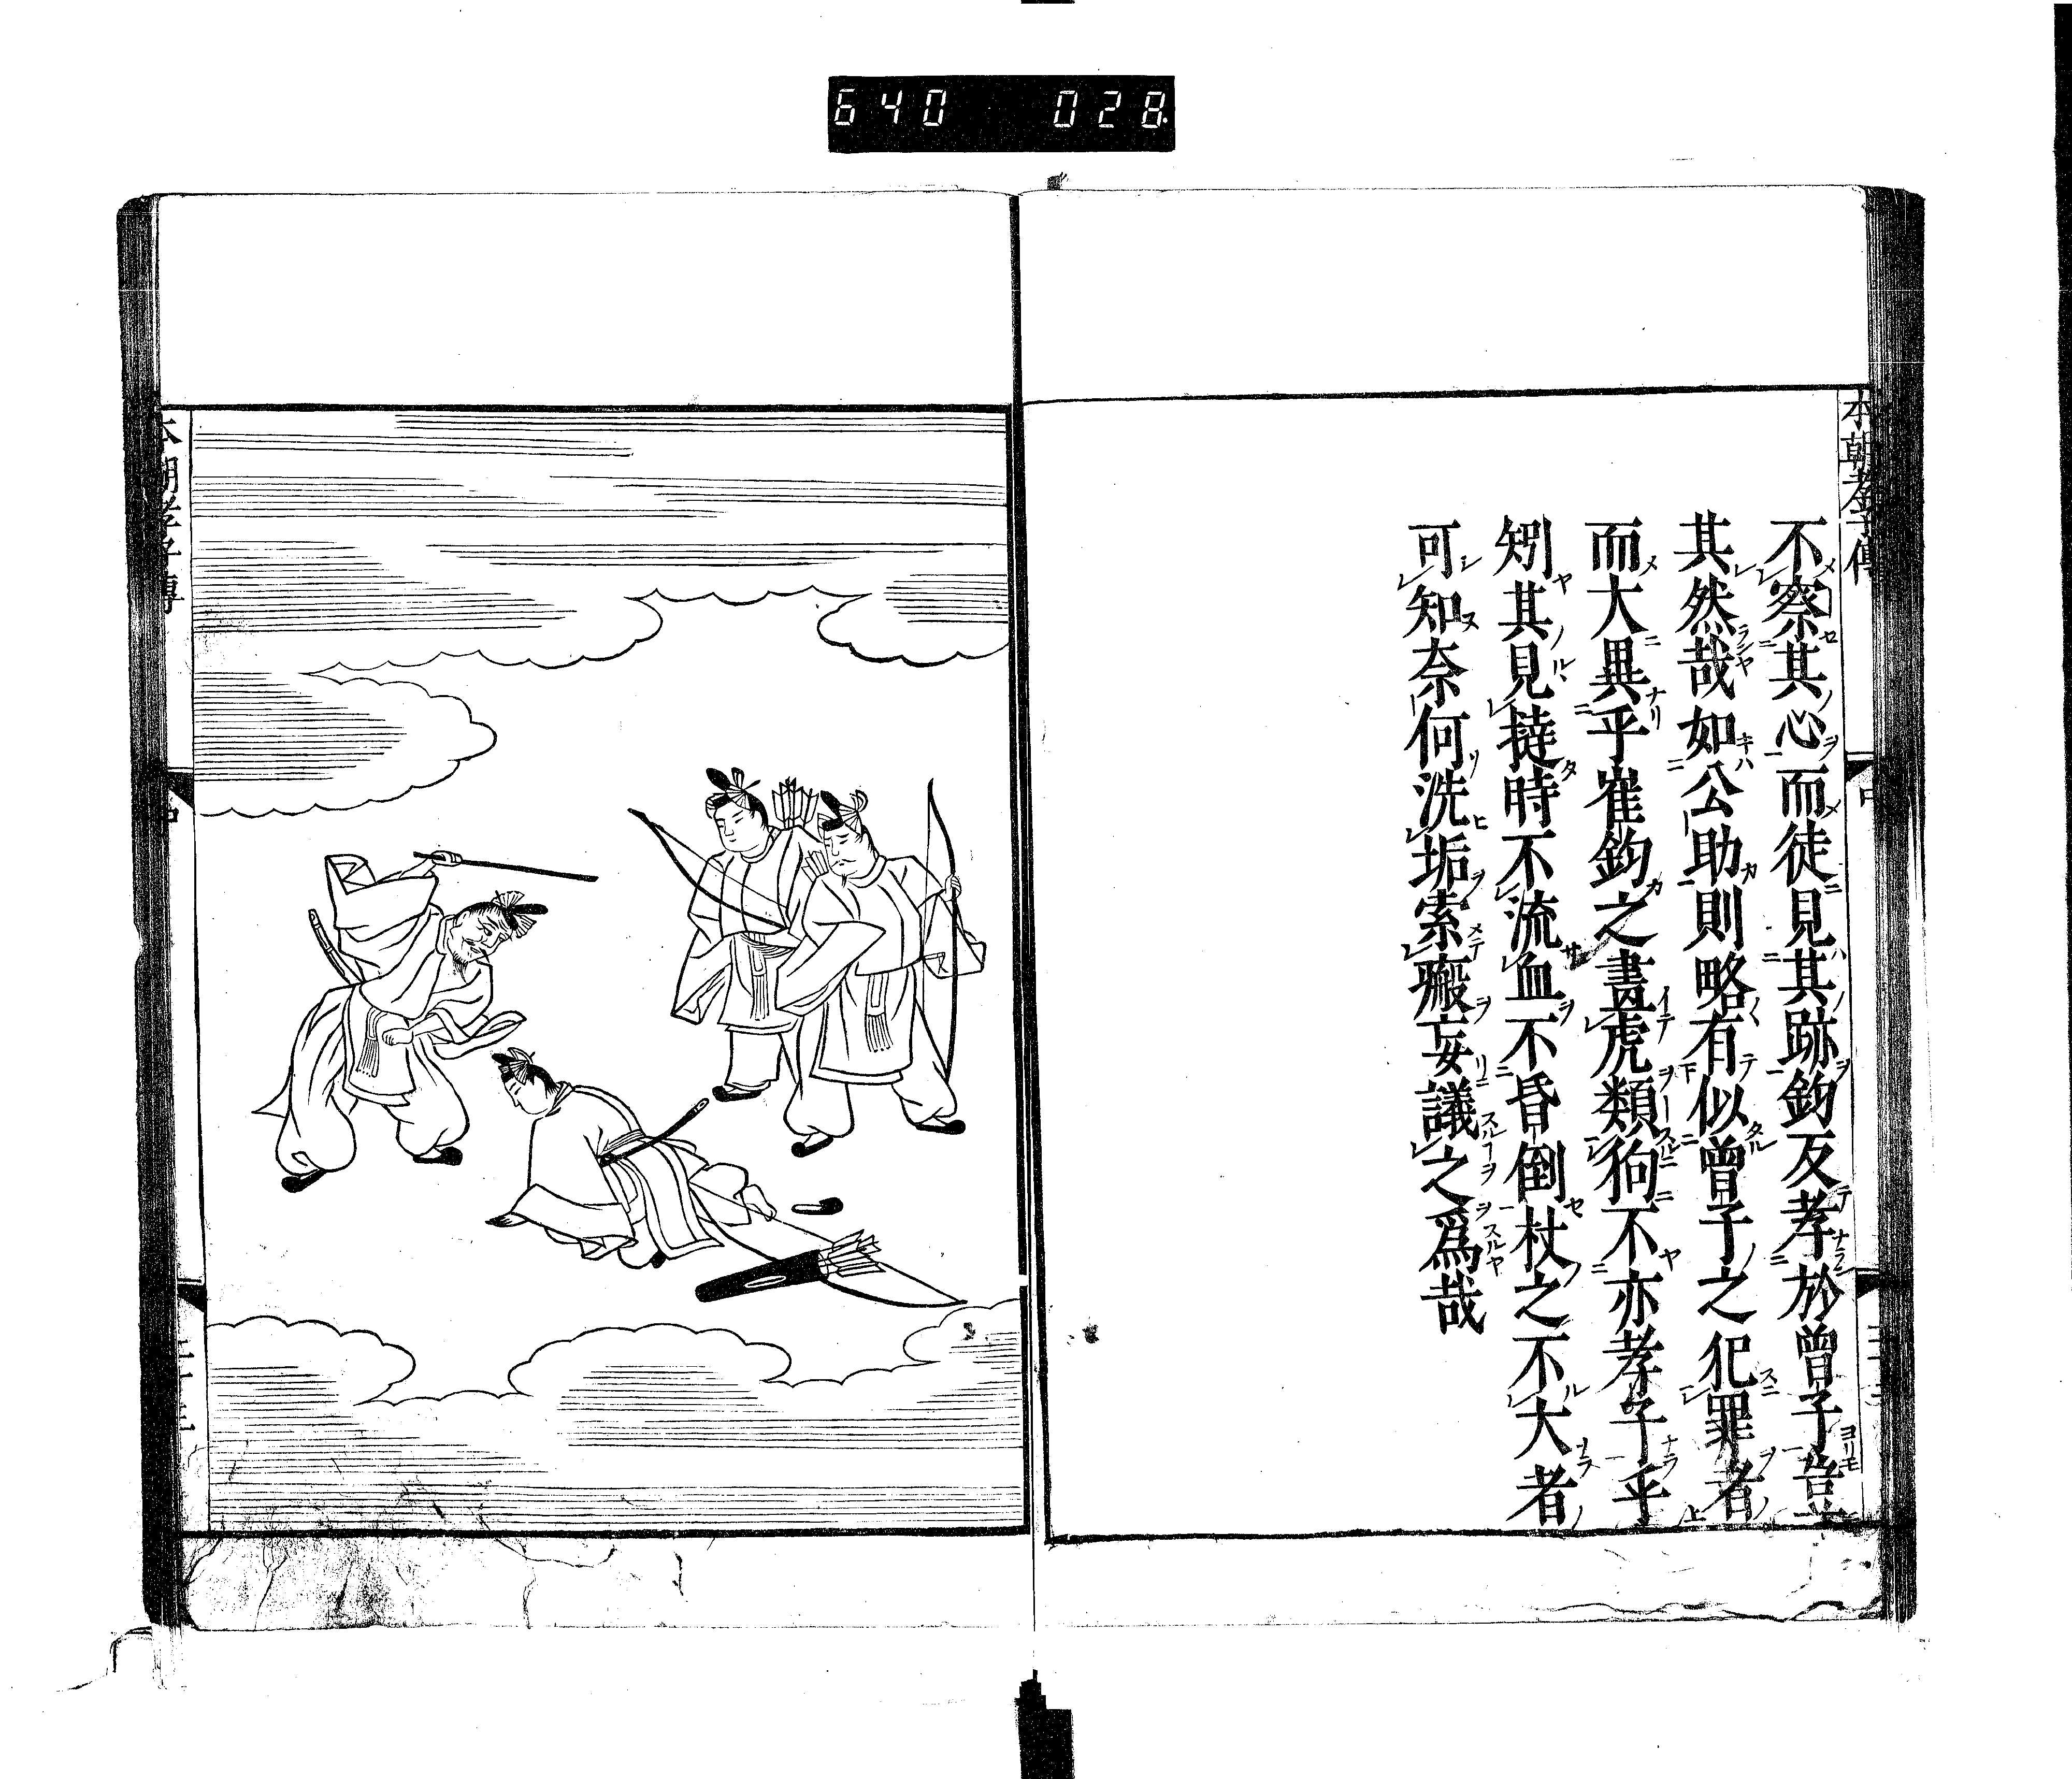 640 028
本朝孝子傳
不察其心而徒見其跡鈞反孝於曾子豈
其然哉如公助則略有似曾子之犯罪者
而大異乎崔鈞之畫虎類狗不亦孝子乎
矧其見撻時不流血不昏倒杖之不大者
可知奈何洗垢索瘢妄議之爲哉
本朝孝子傳